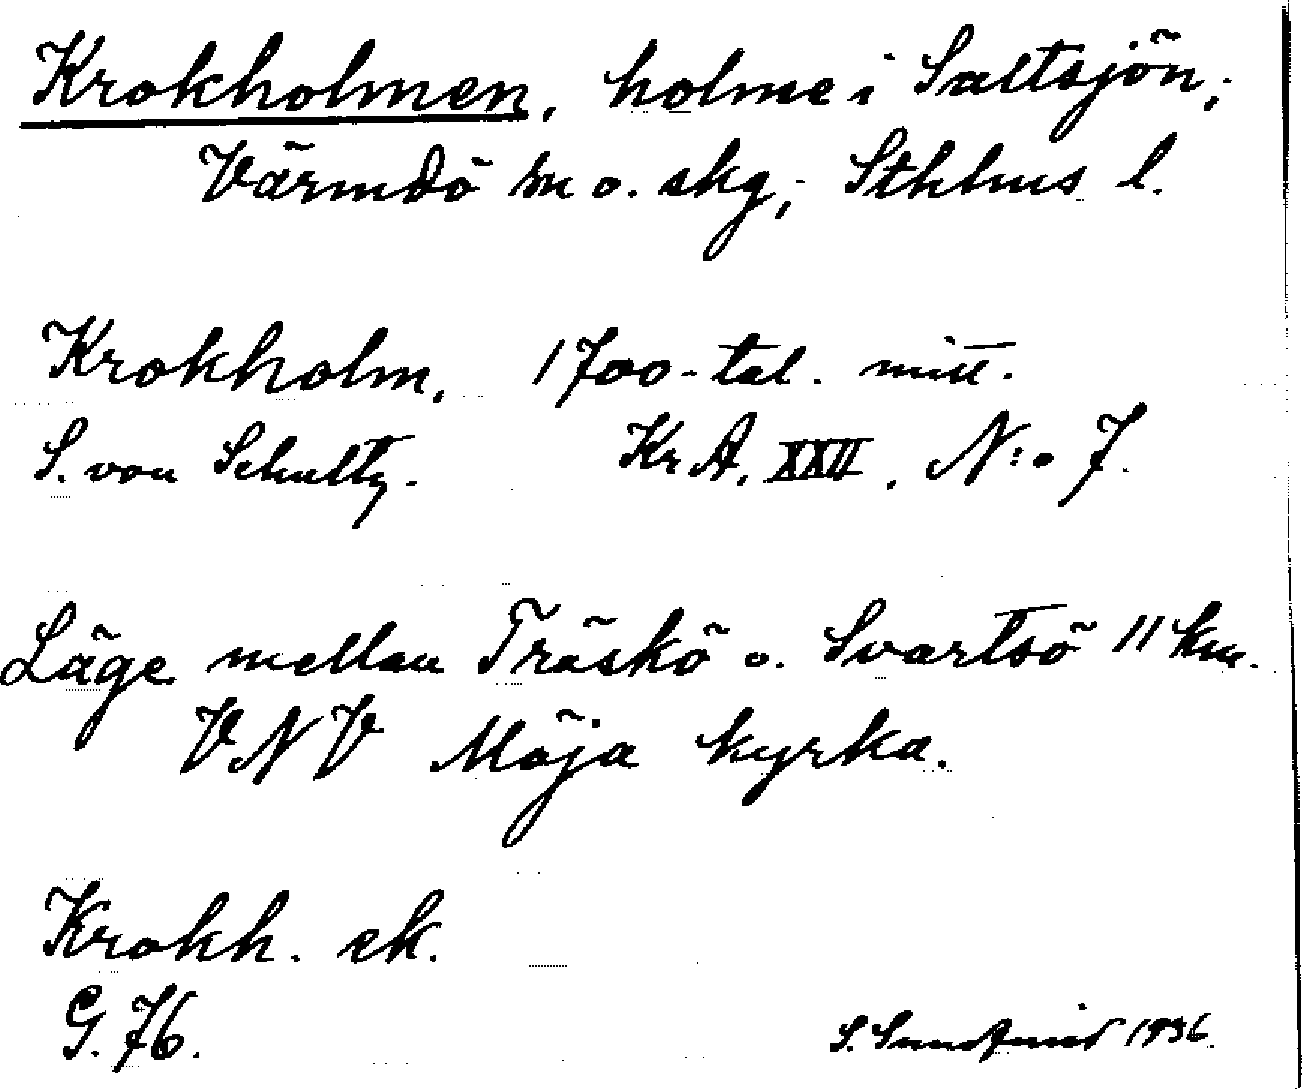 Krokholmen, holme i Saltsjön,
Värmdö m o. skg, Sthlms l.
Krokholm, 1700-tal. mitt.
S. von Schultz. Kr A. XXII, N:o 7.
Läge mellan Träskö o. Svartsö 11 km.
VNV Möja kyrka.
Krokh. ek.
G. 76.
S. 1936.